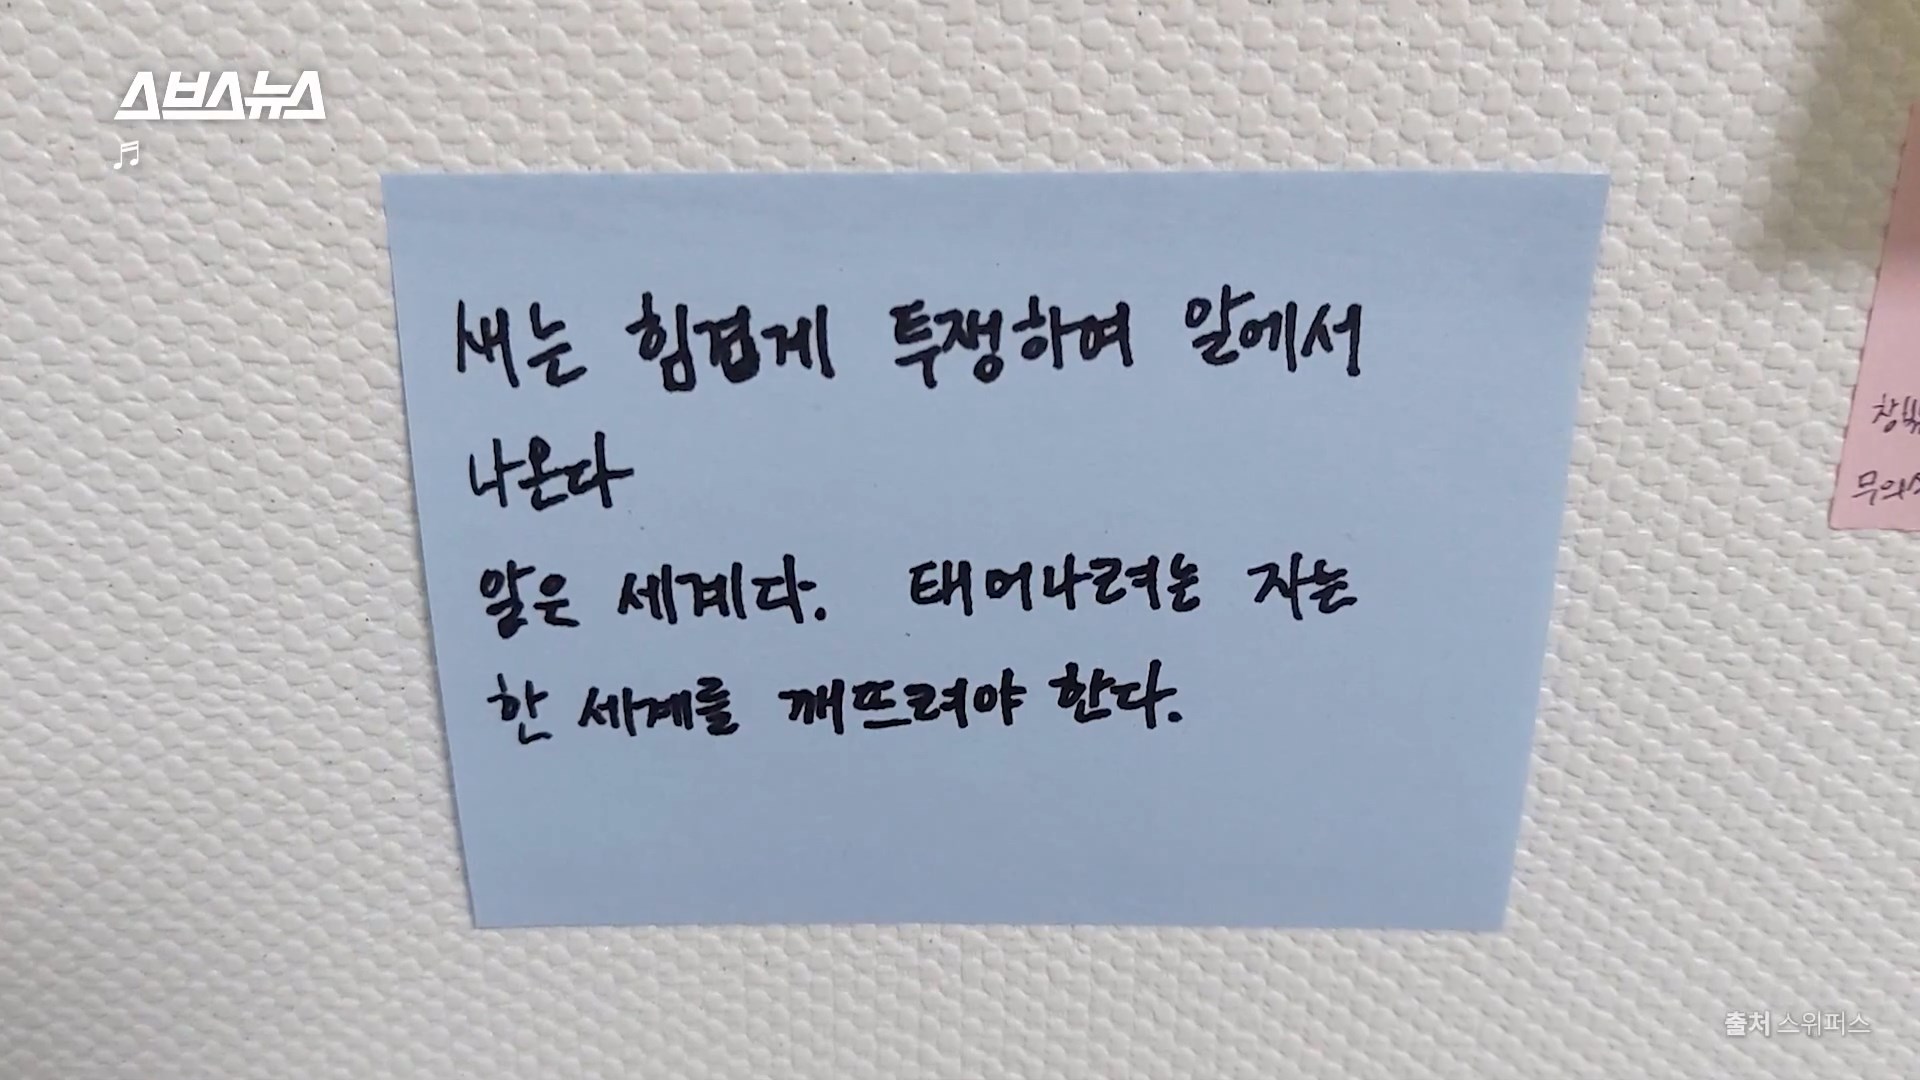 스브스뉴스
♬
새는 힘겹게 투쟁하여 알에서
나온다
알은 세계다. 태어나려는 자는
한 세계를 깨뜨려야 한다.
출처 스위퍼스